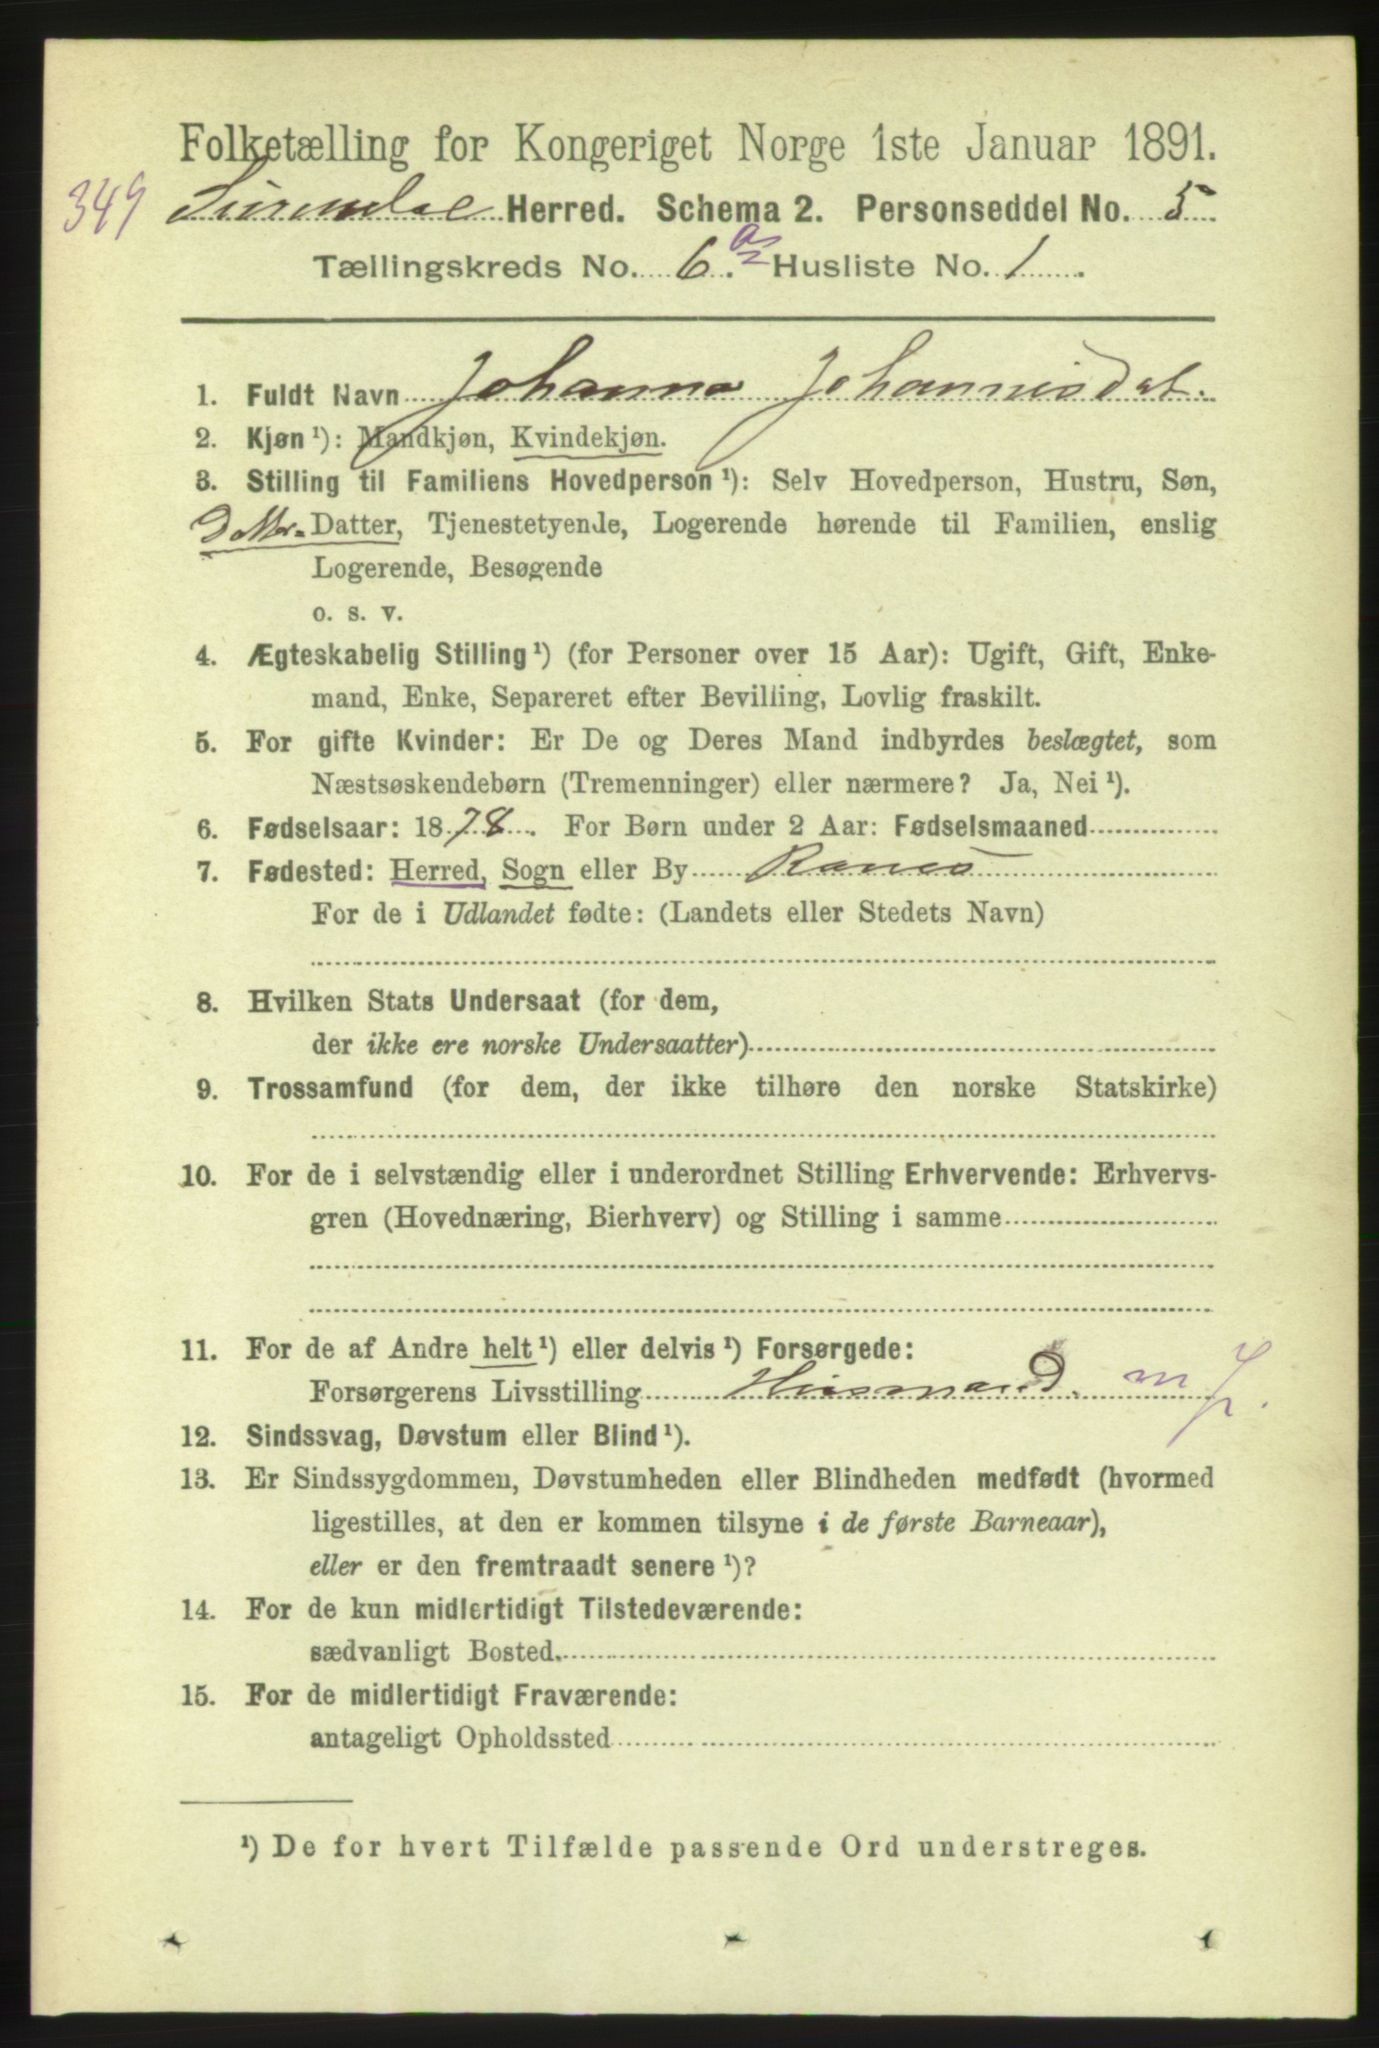 Folketælling for Kongeriget Norge 1ste Januar 1891.
349 Surendal Herred. Schema 2. Personseddel No. 5
Tællingskreds No. 6. a Husliste No. 1.
1. Fuldt Navn Johanna Johannesdat.
2. Kjøn ¹): Mandkjøn, Kvindekjøn.
3. Stilling til Familiens Hovedperson ¹): Selv Hovedperson, Hustru, Søn,
Datter. Datter, Tjenestetyende, Logerende hørende til Familien, enslig
Logerende, Besøgende
o. s. v.
4. Ægteskabelig Stilling ¹) (for Personer over 15 Aar): Ugift, Gift, Enke-
mand, Enke, Separeret efter Bevilling, Lovlig fraskilt.
5. For gifte Kvinder: Er De og Deres Mand indbyrdes beslægtet, som
Næstsøskendebørn (Tremenninger) eller nærmere? Ja, Nei ¹).
6. Fødselsaar: 1878. For Børn under 2 Aar: Fødselsmaaned
7. Fødested: Herred, Sogn eller By Ranes
For de i Udlandet fødte: (Landets eller Stedets Navn)
8. Hvilken Stats Undersaat (for dem,
der ikke ere norske Undersaatter)
9. Trossamfund (for dem, der ikke tilhøre den norske Statskirke)
10. For de i selvstændig eller i underordnet Stilling Erhvervende: Erhvervs-
gren (Hovednæring, Bierhverv) og Stilling i samme
11. For de af Andre helt ¹) eller delvis ¹) Forsørgede:
Forsørgerens Livsstilling Husmand. m J.
12. Sindssvag, Døvstum eller Blind ¹).
13. Er Sindssygdommen, Døvstumheden eller Blindheden medfødt (hvormed
ligestilles, at den er kommen tilsyne i de første Barneaar),
eller er den fremtraadt senere ¹)?
14. For de kun midlertidigt Tilstedeværende:
sædvanligt Bosted.
15. For de midlertidigt Fraværende:
antageligt Opholdssted
¹) De for hvert Tilfælde passende Ord understreges.